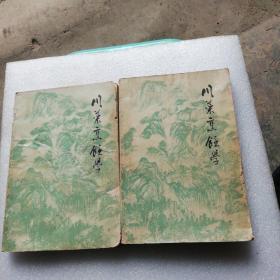 川菜烹饪学
川菜烹饪学